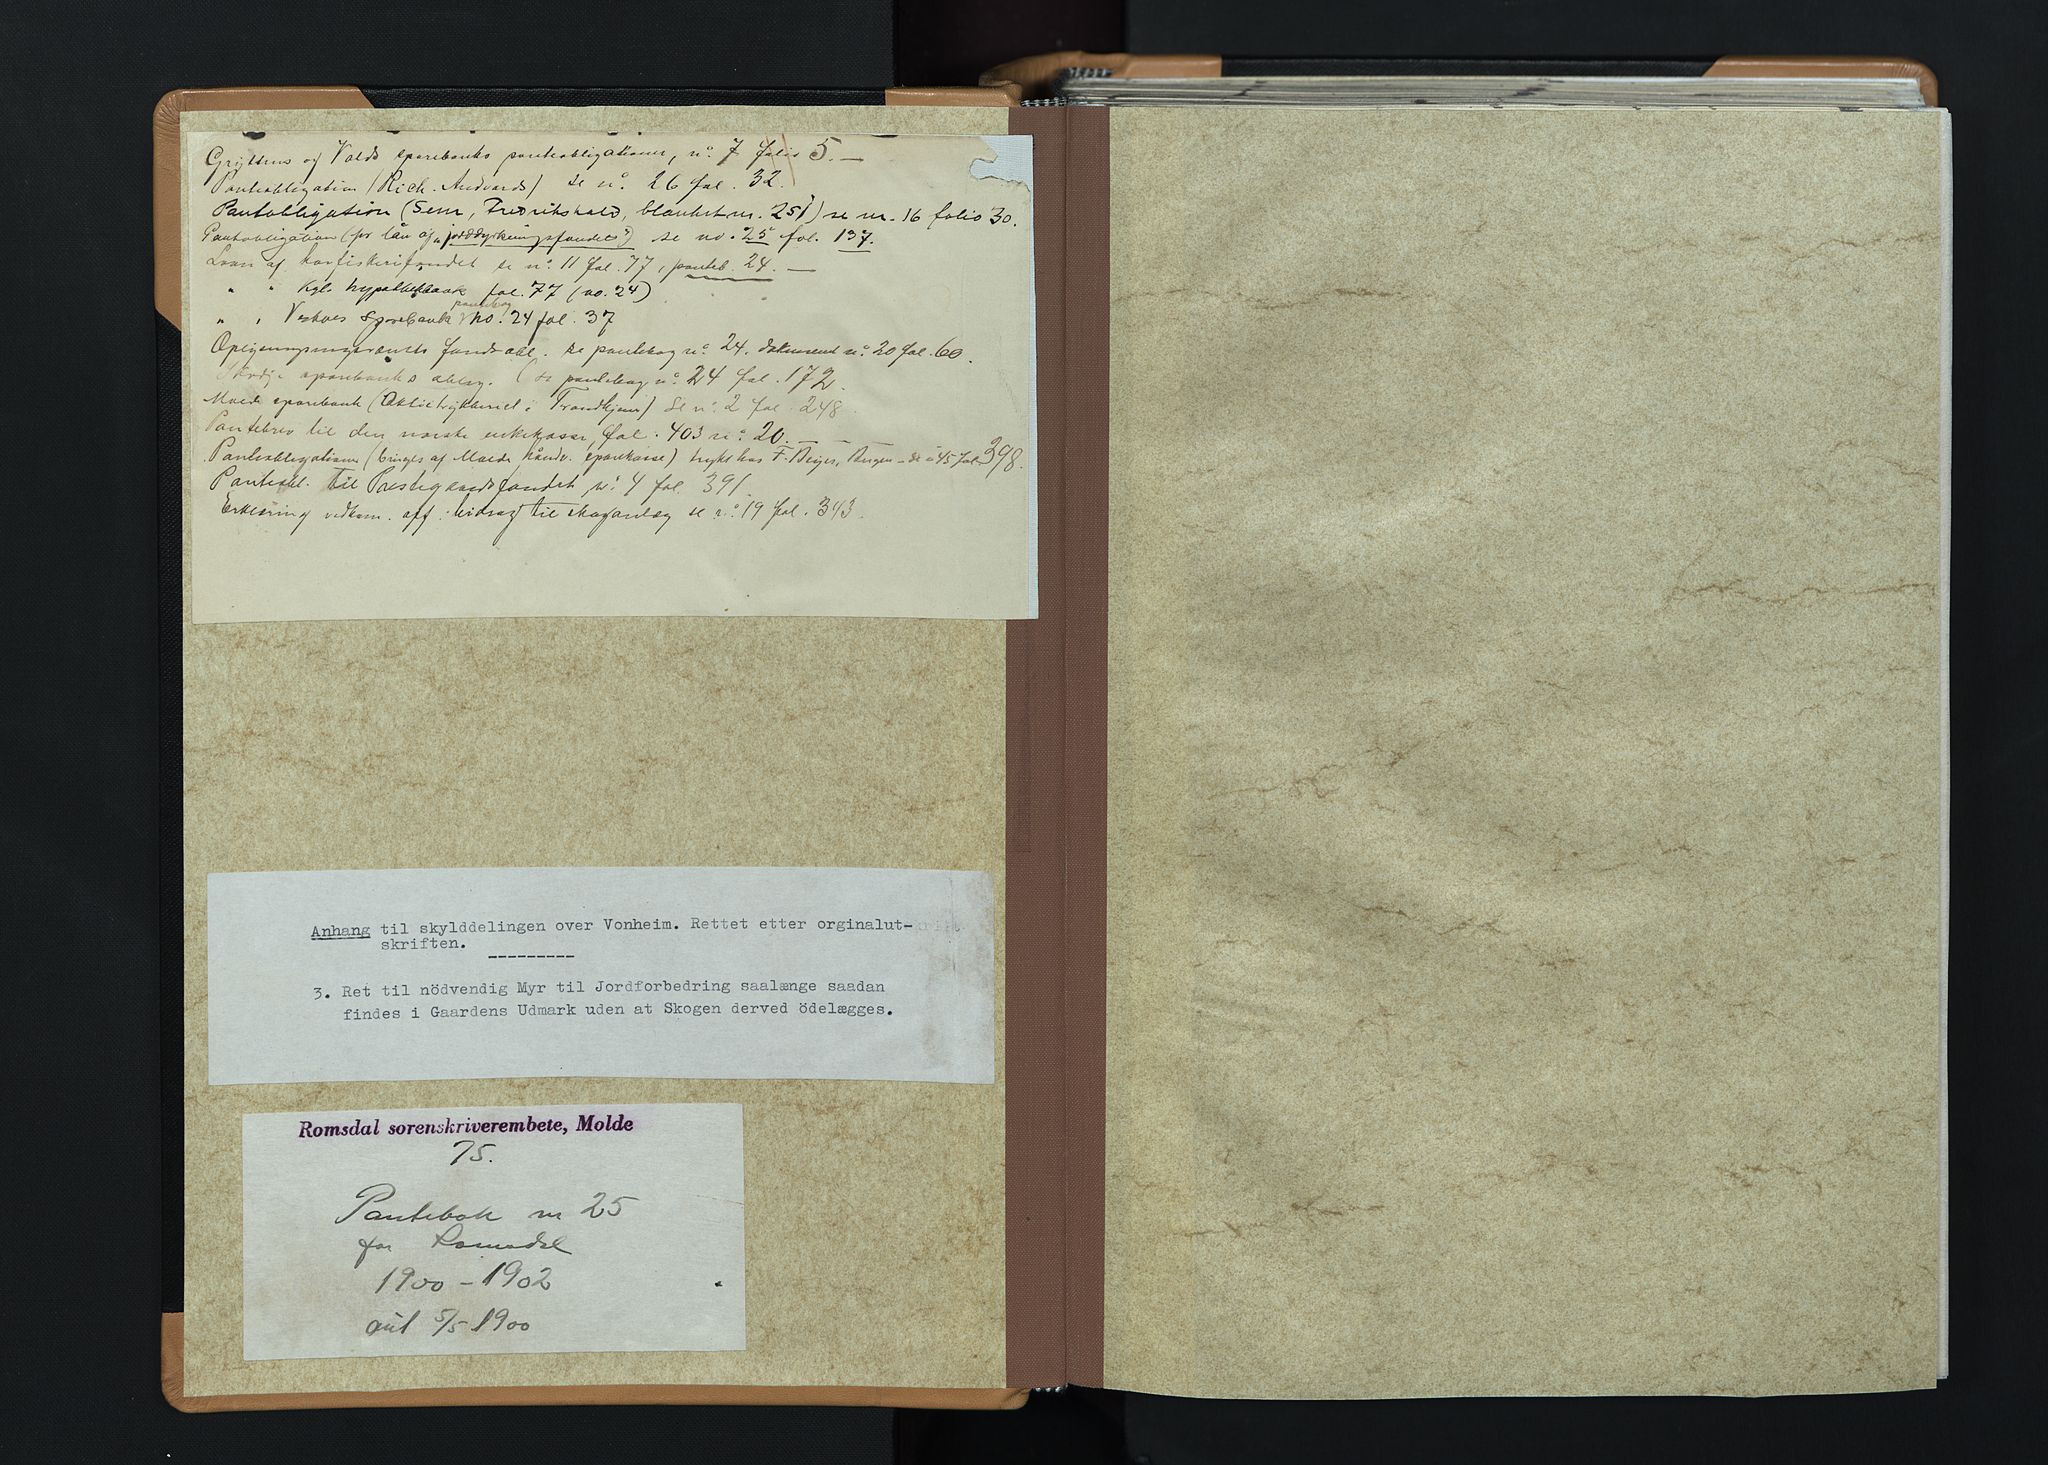 Gryttens og Volds sparebanks panteobligationer, n°. 7 folio 5. —
Panteobligation (Rich. Andvords) se n°. 26 fol. 32.
Pantobligation (Sem, Fredrikshald, blanket nr. 251) se nr. 16 folio 30.
Pantobligation (for lån af „jorddyrkningsfondet") se no. 25 fol. 137.
Laan af havfiskerifondet se n°. 11 fol. 77, panteb. 24. —
" " Kgl. hypothekbank fol. 77 (no. 24)
" " Vestnes Sparebank pantebog no. 24 fol. 37
Opsynings fonds obl. se pantebog n°. 24. dokument n°. 20 fol. 60.
sparebanks oblig. (se pantebog n°. 24 fol. 172.
Molde sparebank (Aktietrykkeriet i Trondhjem) se n°. 2 fol. 248.
Pantebrev til den norske enkekasse, fol. 403 n°. 20. — —
Panteobligationer (bruges af Molde håndv. sparekasse) trykt hos F. Beyer, Bergen – se n° 45 fol. 398.
Panteobl. til Præstegaardsfondet, n°. 4 fol. 391.
Erklæring vedkom. off. bidrag til skoganlæg se n°. 19 fol. 343.
Anhang til skylddelingen over Vonheim. Rettet etter orginalut-
skriften.
---------
3. Ret til nödvendig Myr til Jordforbedring saalænge saadan
findes i Gaardens Udmark uden at Skogen derved ödelægges.
Romsdal sorenskriverembete, Molde
75.
Pantebok nr 25
for Romsdal
1900 – 1902
5/5 1900